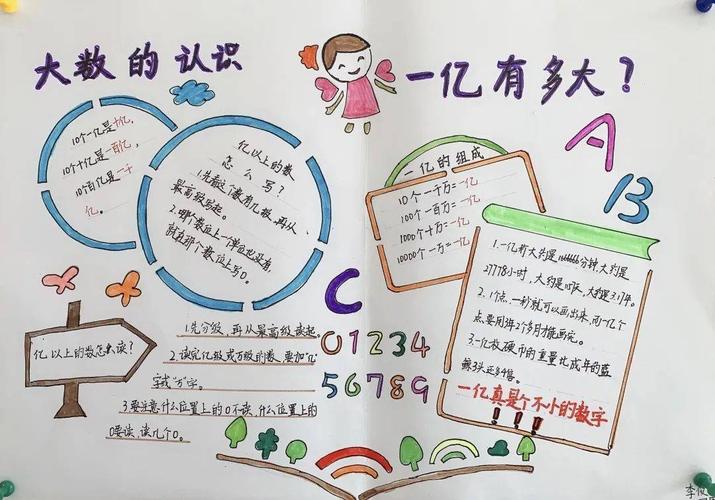 大数的认识
一亿有多大？
10个一亿是十亿，
10个十亿是一百亿，
10个百亿是一千
亿。
亿以上的数
怎么写？
1.先看这个数有几级，再从
最高级写起。
2.哪个数位上一个单位也没有，
就在那个数位上写0。
一亿的组成
10个一千万=一亿
100个一百万=一亿
1000个十万=一亿
10000个一万=一亿
A
B
C
1.一亿秒大约是分钟，大约是
27778小时，大约是天，大约是3.17年。
2.1个点，一秒就可以画出来，而一亿个
点要用3年2个多月才能画完。
3.一亿枚硬币的重量比成年的蓝
鲸3头还多
一亿真是个不小的数字
!!!
亿以上的数怎么读？
1.先分级，再从最高级读起。
2.读完亿级或万级的数，要加“亿”
字或“万”字。
3.要注意什么位置上的0不读，什么位置上的
0要读，读几个0。
01234
56789
李